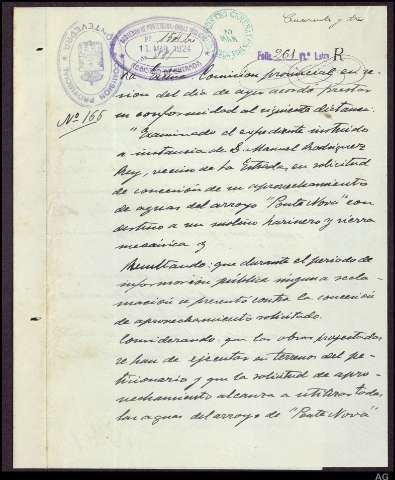 Cuarenta y dos
GOBIERNO PROVINCIAL
11 MAR 1924
PONTEVEDRA
Folio 261 nº Letra R
La Excma. Comisión provincial, en se-
sion del dia de ayer acordó prestar
su conformidad al siguiente dictamen:
Nº 166
"Examinado el expediente instruido
a instancia de D. Manuel Rodríguez
Rey, vecino de La Estrada, en solicitud
de concesión de un aprovechamiento
de aguas del arroyo "Ponte Nova" con
destino a un molino harinero y sierra
mecánica y
Resultando: que durante el periodo de
información pública ninguna recla-
mación se presentó contra la concesión
de aprovechamiento solicitado.
Considerando: que las obras proyectadas
se han de ejecutar en terrenos del pe-
ticionario y que la solicitud de apro-
vechamiento alcanza a utilizar todas
las aguas del arroyo de "Ponte Nova"
AG